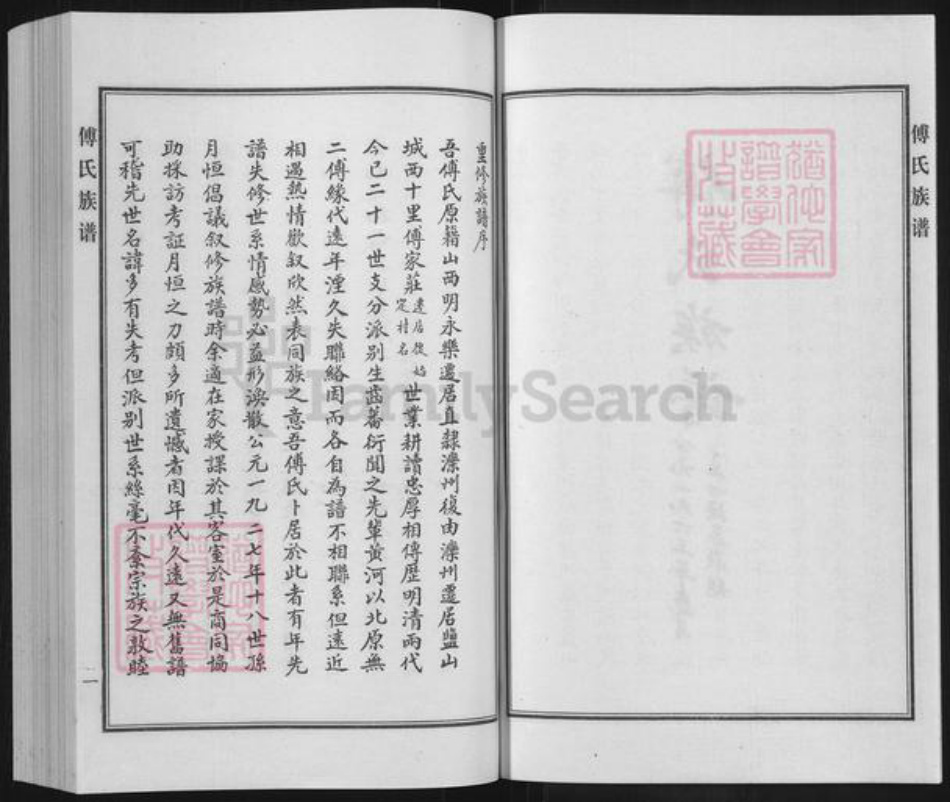 傅氏族谱
猶他家
譜學會
收藏
重修族譜序
吾傅氏原籍山西明永樂遷居直隸灤州復由灤州遷居鹽山
城西十里傅家莊遷居後始定村名世業耕讀忠厚相傳歷明清兩代
今已二十一世支分派别生齒蕃衍聞之先輩黄河以北原無
二傅緣代遠年湮久失聯絡因而各自為譜不相聯系但遠近
相遇熱情歡叙欣然表同族之意吾傅氏卜居於此者有年先
譜失修世系情感勢必益形渙散公元一九二七年十八世孫
月恒倡議叙修族譜時余適在家授課於其客室於是商同協
助採訪考証月恒之力頗多所遺憾者因年代久遠又無舊譜
可稽先世名諱多有失考但派别世系絲毫不紊宗族之敦睦
傅氏族谱
一
猶他家
譜學會
收藏
FamilySearch